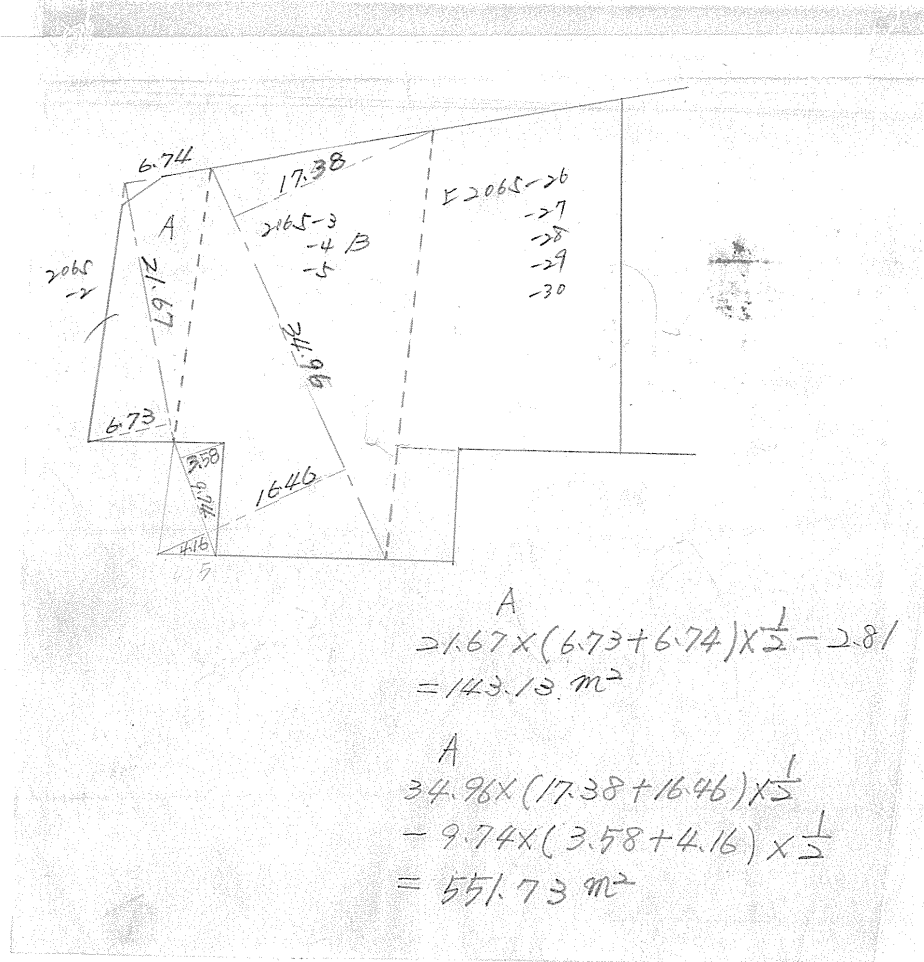 6.74
17.38
A
21.67
2065
-2
2065-3
-4 B
-5
E 2065-26
-27
-28
-29
-30
34.96
6.73
3.58
9.74
16.46
4.16
5
A
21.67×(6.73+6.74)×1/2-2.81
=143.13 m²
A
34.96×(17.38+16.46)×1/2
-9.74×(3.58+4.16)×1/2
=551.73 m²